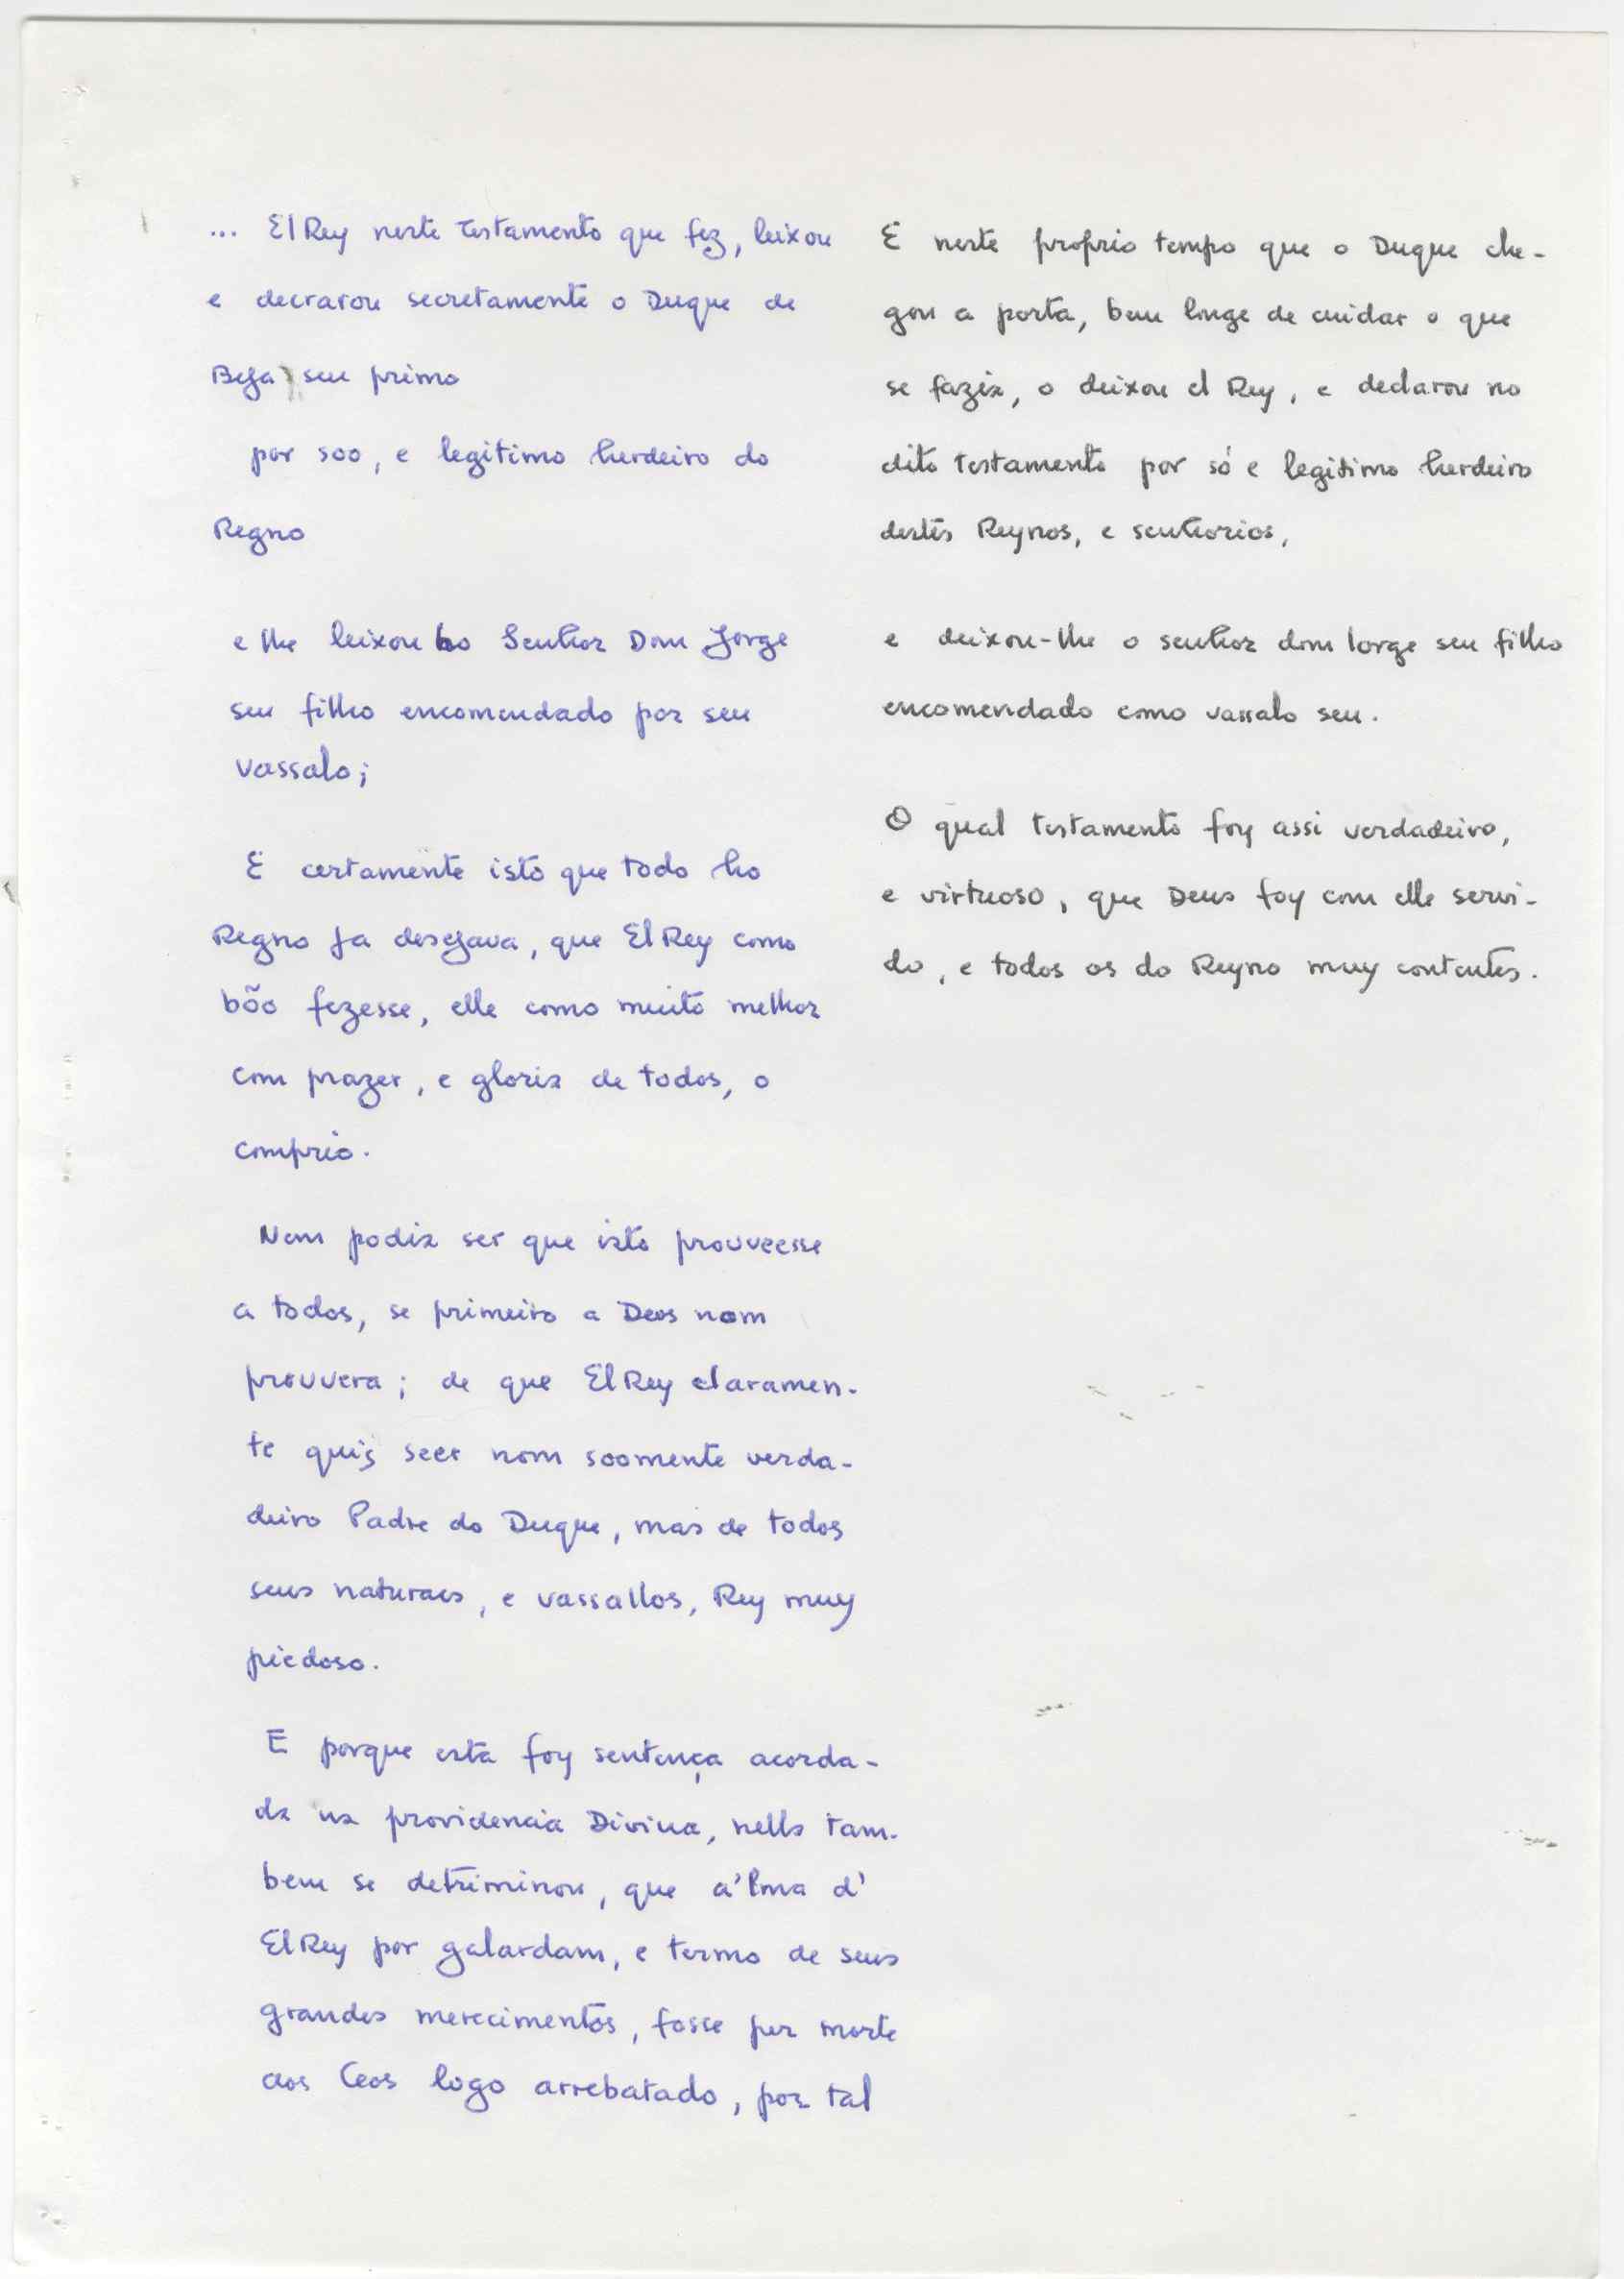 ... ElRey neste testamento que fez, leixou
e decrarou secretamente o Duque de
Beja seu primo
por soo, e legitimo herdeiro do
Regno
e lhe leixou ho Senhor Dom Jorge
seu filho encomendado por seu
vassalo;
E certamente isto que todo ho
Regno ja desejava, que ElRey como
bõo fezesse, elle como muito melhor
com prazer, e gloria de todos, o
comprio.
Nem podia ser que isto prouveesse
a todos, se primeiro a Deos nom
prouvera; de que ElRey claramen-
te quis seer nom soomente verda-
deiro Padre do Duque, mas de todos
seus naturaes, e vassallos, Rey muy
piedoso.
E porque esta foy sentença acorda-
da na providencia Divina, nella tam-
bem se detriminou, que a'lma d'
ElRey por galardam, e termo de seus
grandes merecimentos, fosse per morte
aos Ceos logo arrebatado, por tal
E neste proprio tempo que o Duque che-
gou a porta, bem longe de cuidar o que
se fazia, o deixou el Rey, e declarou no
dito testamento por só e legitimo herdeiro
destes Reynos, e senhorios,
e deixou-lhe o senhor dom Iorge seu filho
encomendado como vassalo seu.
O qual testamento foy assi verdadeiro,
e virtuoso, que Deus foy com elle servi-
do, e todos os do Reyno muy contentes.